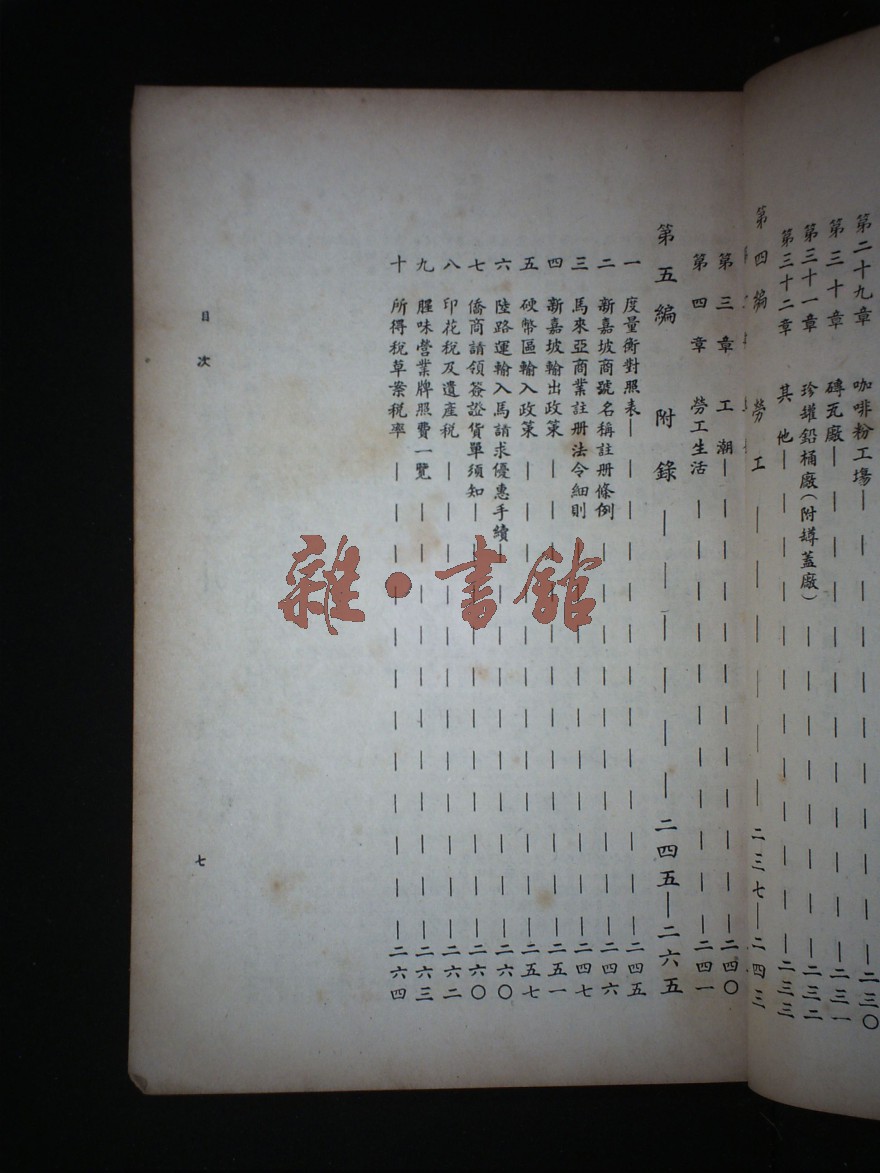 第二十九章 咖啡粉工場—二三〇
第三十章 磚瓦廠—二三一
第三十一章 珍罐鉛桶廠(附罇蓋廠)—二三二
第三十二章 其他—二三三
第四編 勞工—二三七—二四三
第三章 工潮—二四〇
第四章 勞工生活—二四一
第五編 附錄—二四五—二六五
一 度量衡對照表—二四五
二 新嘉坡商號名稱註册條例—二四六
三 馬來亞商業註册法令細則—二四七
四 新嘉坡輸出政策—二五一
五 硬幣區輸入政策—二五七
六 陸路運輸入馬請求優惠手續—二六〇
七 僑商請領簽證貨單須知—二六〇
八 印花稅及遺產稅—二六二
九 腥味營業牌照費一覽—二六三
十 所得稅草案稅率—二六四
目次
七
雜·書館